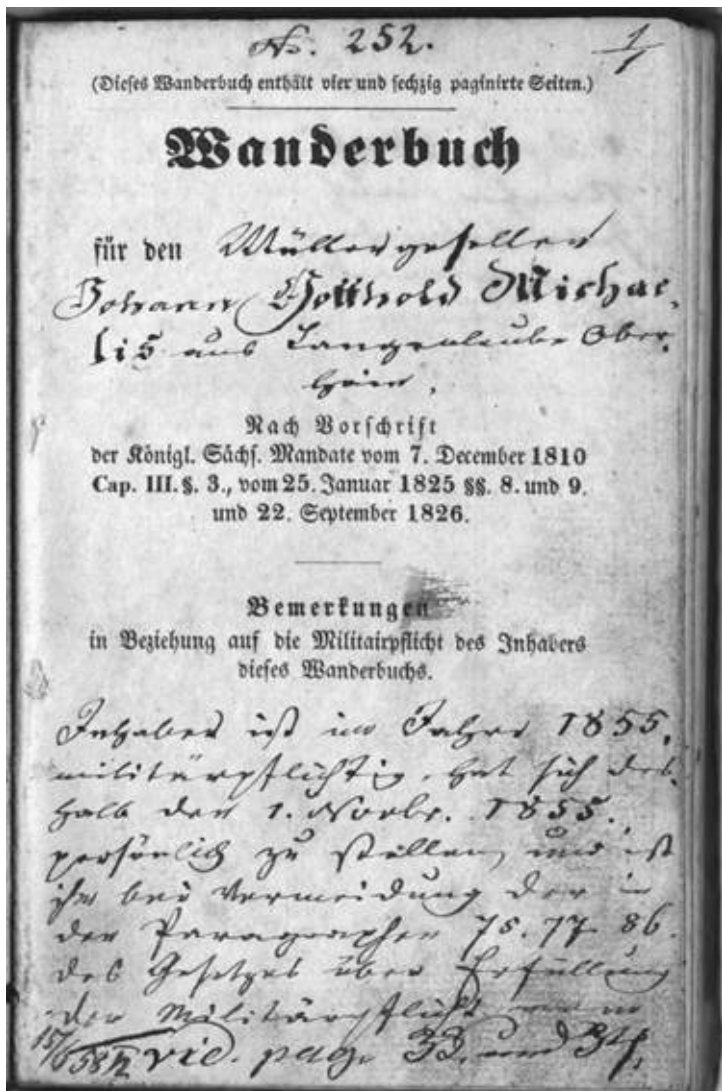 No. 252.
1
(Dieses Wanderbuch enthält vier und sechzig paginirte Seiten.)
Wanderbuch
für den Müllergesellen
Johann Gotthold Michae-
lis aus Langenleube Ober-
hain.
Nach Vorschrift
der Königl. Sächs. Mandate vom 7. December 1810
Cap. III. §. 3., vom 25. Januar 1825 §§. 8. und 9.
und 22. September 1826.
Bemerkungen
in Beziehung auf die Militairpflicht des Inhabers
dieses Wanderbuchs.
Inhaber ist im Jahre 1855.
militärpflichtig, hat sich des-
halb den 1. Novbr. 1855.
persönlich zu stellen, und ist
ihm bei Vermeidung der in
den Paragraphen 75. 77. 86.
des Gesetzes über Erfüllung
der Militärpflicht
vid. pag. 33. und